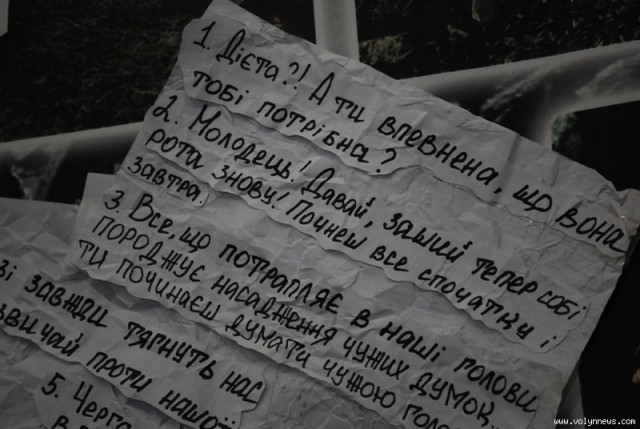 1. Дієта?! А ти впевнена, що вона
тобі потрібна?
2. Молодець! Давай, заший тепер собі
рота знову! Почнеш все спочатку і
завтра.
3. Все, що потрапляє в наші голови
породжує насадження чужих думок...
ти починаєш думати чужою
завжди тягнуть нас
проти нашої
5.
www.volynnews.com